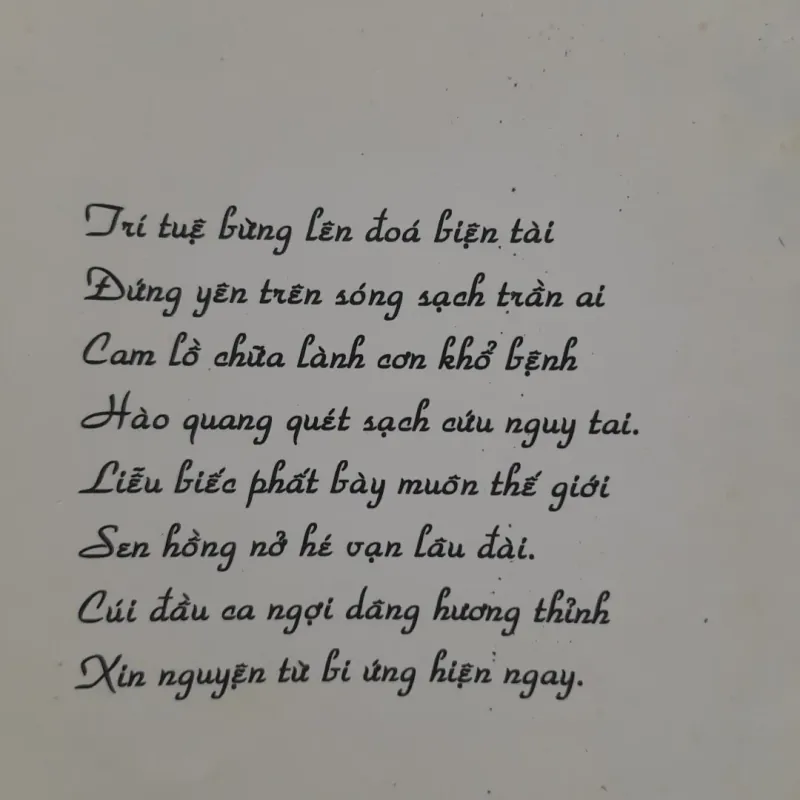 Trí tuệ bừng lên đoá biện tài
Đứng yên trên sóng sạch trần ai
Cam lồ chữa lành cơn khổ bệnh
Hào quang quét sạch cứu nguy tai.
Liễu biếc phất bày muôn thế giới
Sen hồng nở hé vạn lâu đài.
Cúi đầu ca ngợi dâng hương thỉnh
Xin nguyện từ bi ứng hiện ngay.